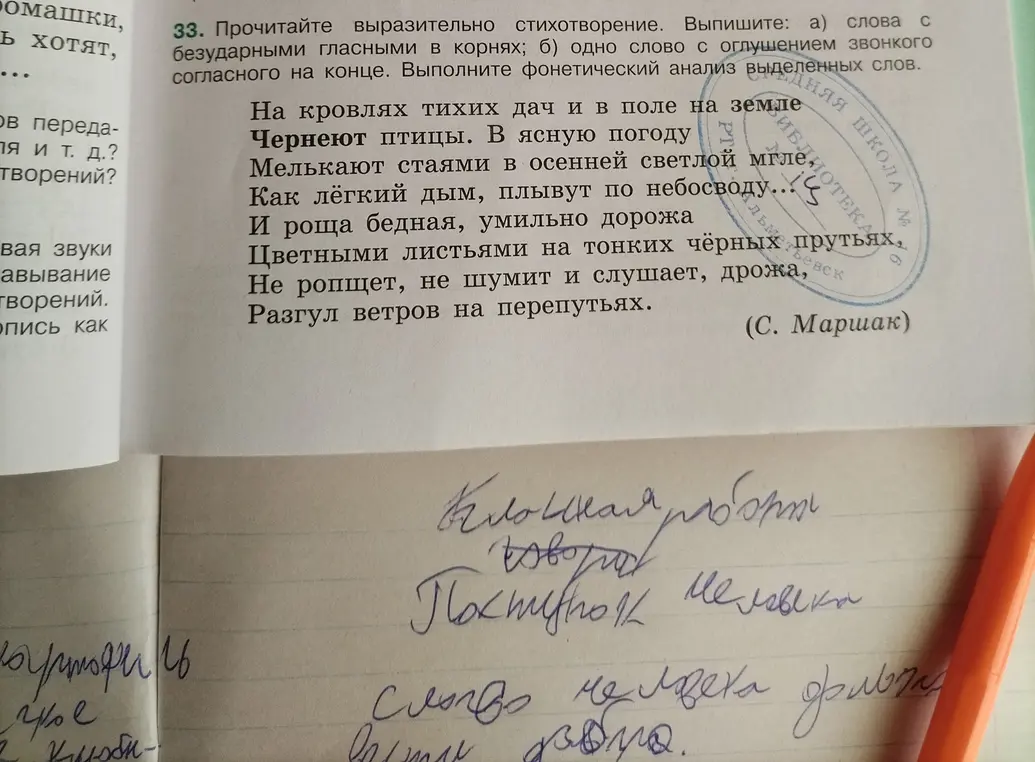 ромашки,
ь хотят,
...
ов переда-
ля и т. д.?
творений?
вая звуки
авывание
творений.
опись как
33. Прочитайте выразительно стихотворение. Выпишите: а) слова с
безударными гласными в корнях; б) одно слово с оглушением звонкого
согласного на конце. Выполните фонетический анализ выделенных слов.
На кровлях тихих дач и в поле на земле
Чернеют птицы. В ясную погоду
Мелькают стаями в осенней светлой мгле,
Как лёгкий дым, плывут по небосводу...
И роща бедная, умильно дорожа
Цветными листьями на тонких чёрных прутьях,
Не ропщет, не шумит и слушает, дрожа,
Разгул ветров на перепутьях.
(С. Маршак)
СРЕДНЯЯ ШКОЛА №
БИБЛИОТЕКА
РТ г. Альметьевск
Классная работа
Поступок человека
Слово человека